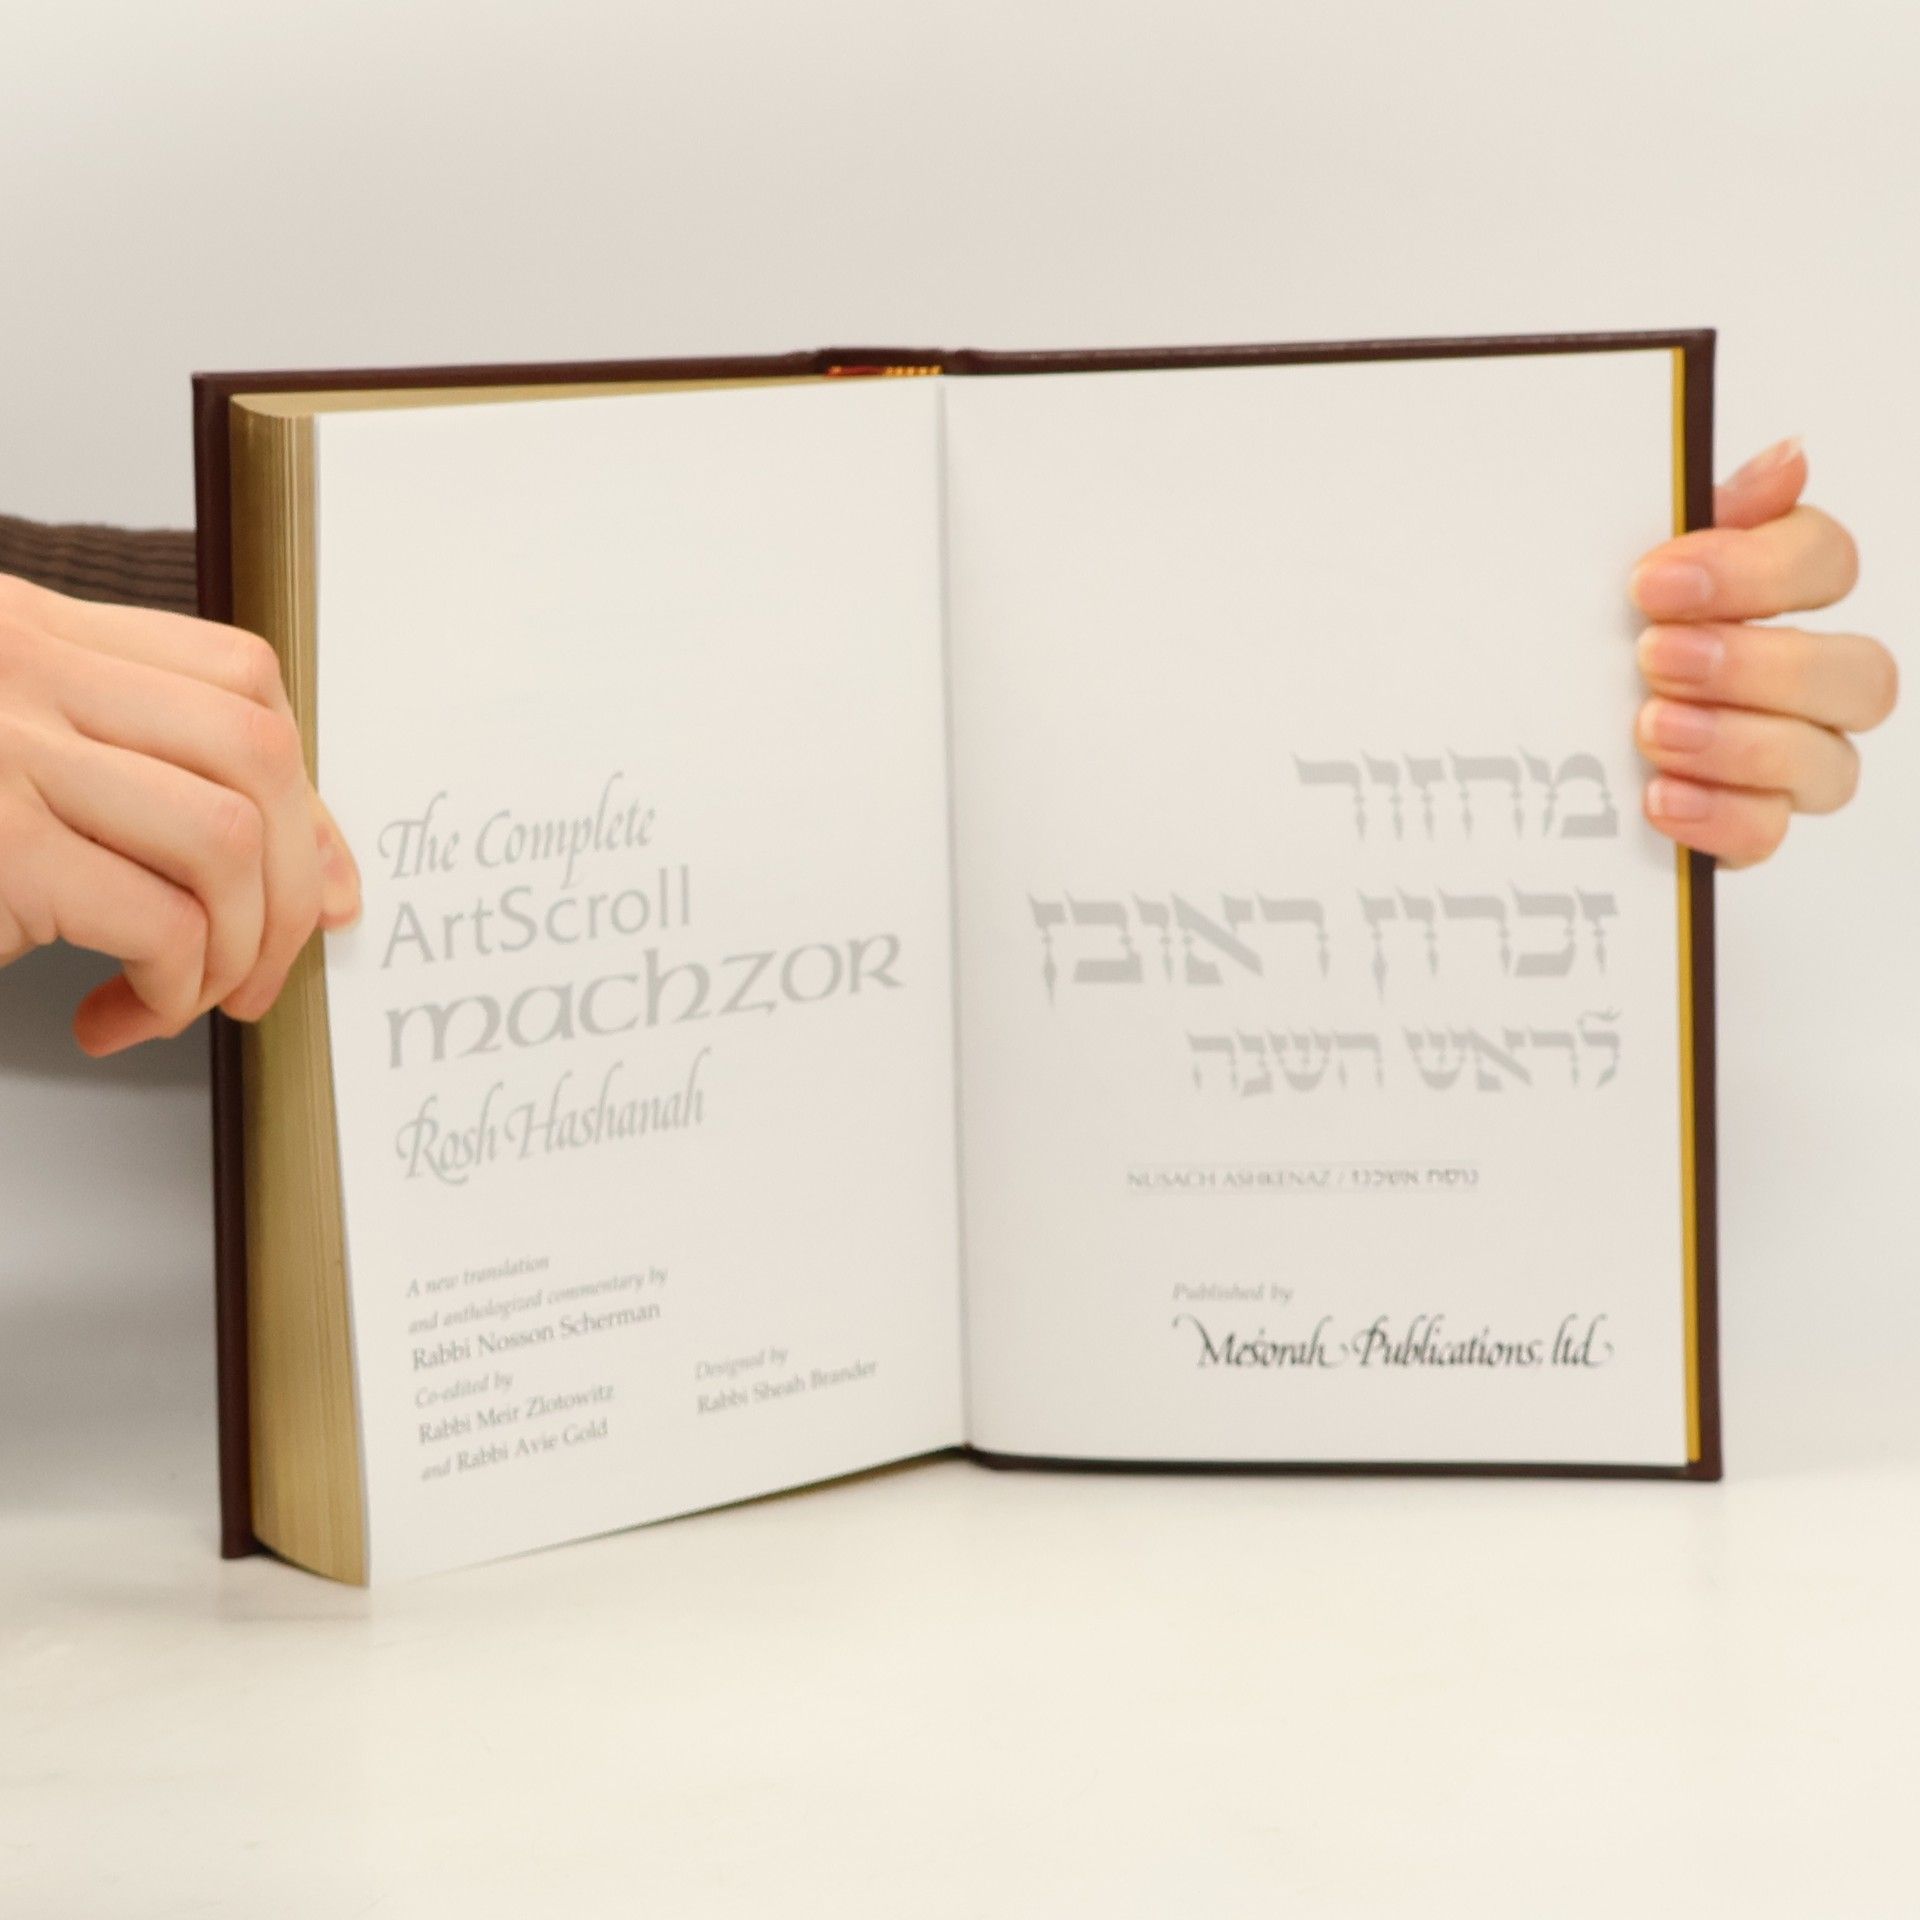 The Complete
ArtScroll
machzor
Rosh Hashanah
A new translation
and anthologized commentary by
Rabbi Nosson Scherman
Co-edited by
Rabbi Meir Zlotowitz
and Rabbi Avie Gold
Designed by
Rabbi Sheah Brander
מחזור
זכרון ראובן
לראש השנה
NUSACH ASHKENAZ / נוסח אשכנז
Published by
Mesorah Publications, ltd